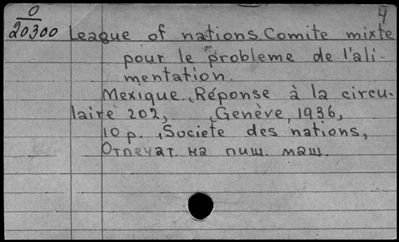 0
20300
4
League of nations. Comite mixte
pour le probleme de l'ali-
mentation.
Mexique. Réponse à la circu-
laire 202, Genève, 1936,
10 p. Societe des nations,
Отпечат. на пиш. маш.